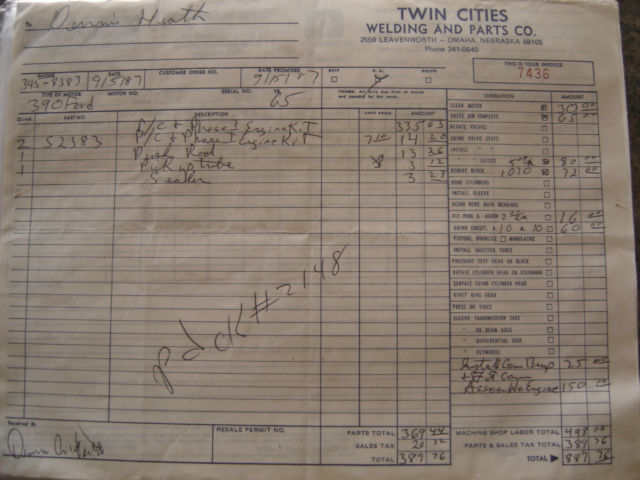 To Dennis Heath
TWIN CITIES
WELDING AND PARTS CO.
2559 LEAVENWORTH - OMAHA, NEBRASKA 68105
Phone 341-0640
PHONE DATE CUSTOMER ORDER NO. DATE PROMISED SHIP P. U. DELVR.
345-8383 9/5/87 9/5/87
THIS IS YOUR INVOICE
7436
TYPE OF MOTOR MOTOR NO. SERIAL NO. YR.
390 Ford 65
QUAN. PART NO. DESCRIPTION UNIT PRICE AMOUNT
P/C + Phase I Engine Kit 335 63
2 52383 P/C + Phase I Engine Kit 7.10 14 20
1 Push Rod 13 26
1 Pick up tube 3 12
1 Sealer 3 23
pd ck # 2148
OPERATION AMOUNT
CLEAN MOTOR 30 00
VALVE JOB COMPLETE 65 00
REFACE VALVES
GRIND VALVE SEATS
INSTALL " "
" " GUIDES 5 ea 80 00
REBORE BLOCK 1030 72 00
HONE CYLINDERS
INSTALL SLEEVE
ALIGN BORE MAIN BEARINGS
FIT PINS & ALIGN 2 ea 16 00
GRIND CRKSFT. & 10 x 10 60 00
PISTONS, KNURLIZE MANULATHE
INSTALL INJECTOR TUBES
PRESSURE TEST HEAD OR BLOCK
REPAIR CYLINDER HEAD ON EXCHANGE
SURFACE GRIND CYLINDER HEAD
RIVET RING GEAR
PRESS OR TIRES
SLEEVE TRANSMISSION CASE
" OR REAR AXLE
" DIFFERENTIAL CASE
" FLYWHEEL
Install Cam Brgs 25 00
Assemble Engine 150 00
Received By
RESALE PERMIT NO.
PARTS TOTAL 369 44
SALES TAX 20 32
TOTAL 389 76
MACHINE SHOP LABOR TOTAL 498 00
PARTS & SALES TAX TOTAL 389 76
TOTAL 887 76